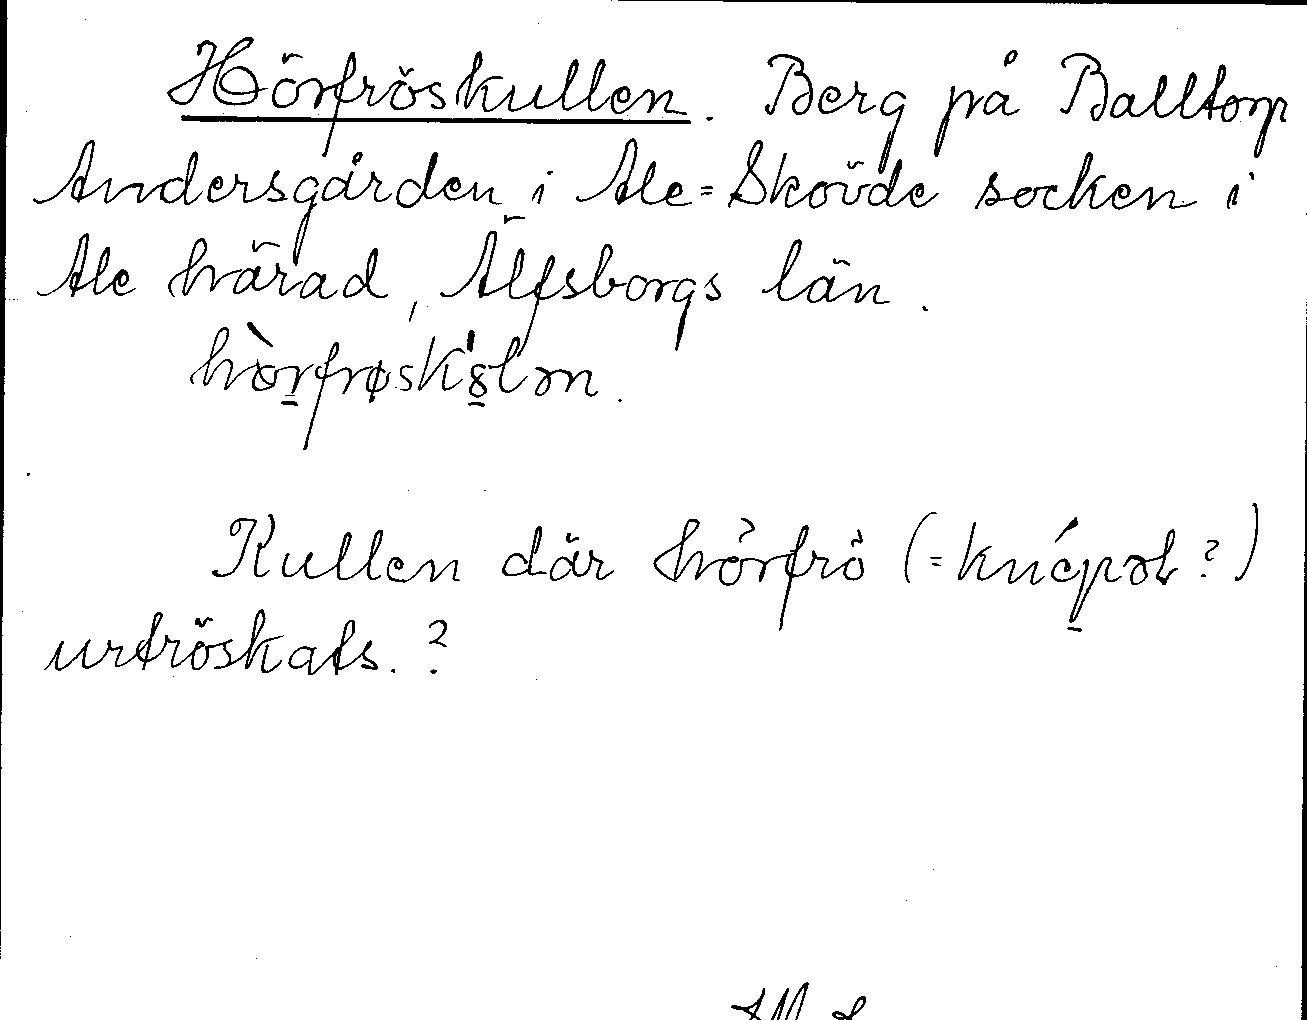 Hörfröskullen. Berg på Balltorp
Andersgården i Ale=Skövde socken i
Ale härad, Älfsborgs län.
Kullen där hörfrö (=
?)
urfröskats.?